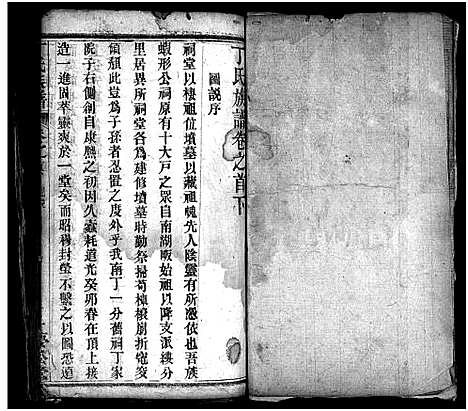 丁氏族譜卷之首下
圖説序
祠堂以棲祖位墳墓以藏祖魄先人陰靈有所憑依也吾族
蝦形公祠原有十大戸之眾自南湖畈始祖以降支派緩分
里居異所祠堂各為建修墳墓時勤祭掃茍棟榱崩折寃窆
傾頹此豈為子孫者忍置之度外乎我南丁一分舊祠丁家
院子右側創自康熙之初因久蠹耗道光癸卯春在頂上接
造一進固萃靈爽於一堂矣而昭穆封塋不繫之以圖恐遠